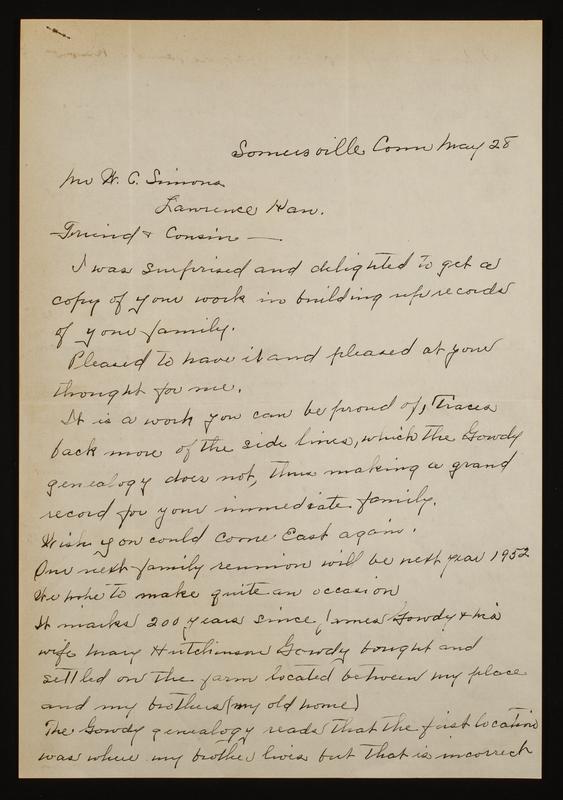 Somersville Conn May 28
Mr W. C. Simons
Lawrence Kan.
Friend & Cousin —
I was surprised and delighted to get a
copy of your work in building up records
of your family.
Pleased to have it and pleased at your
thought for me.
It is a work you can be proud of, Traces
back more of the side lines, which the Gowdy
genealogy does not, thus making a grand
record for your immediate family.
Wish you could come East again.
Our next family reunion will be next year 1952
We hope to make quite an occasion
It marks 200 years since James Gowdy & his
wife Mary Hutchinson Gowdy bought and
settled on the farm located between my place
and my brothers (my old home)
The Gowdy genealogy reads that the first location
was where my brother lives but that is incorrect